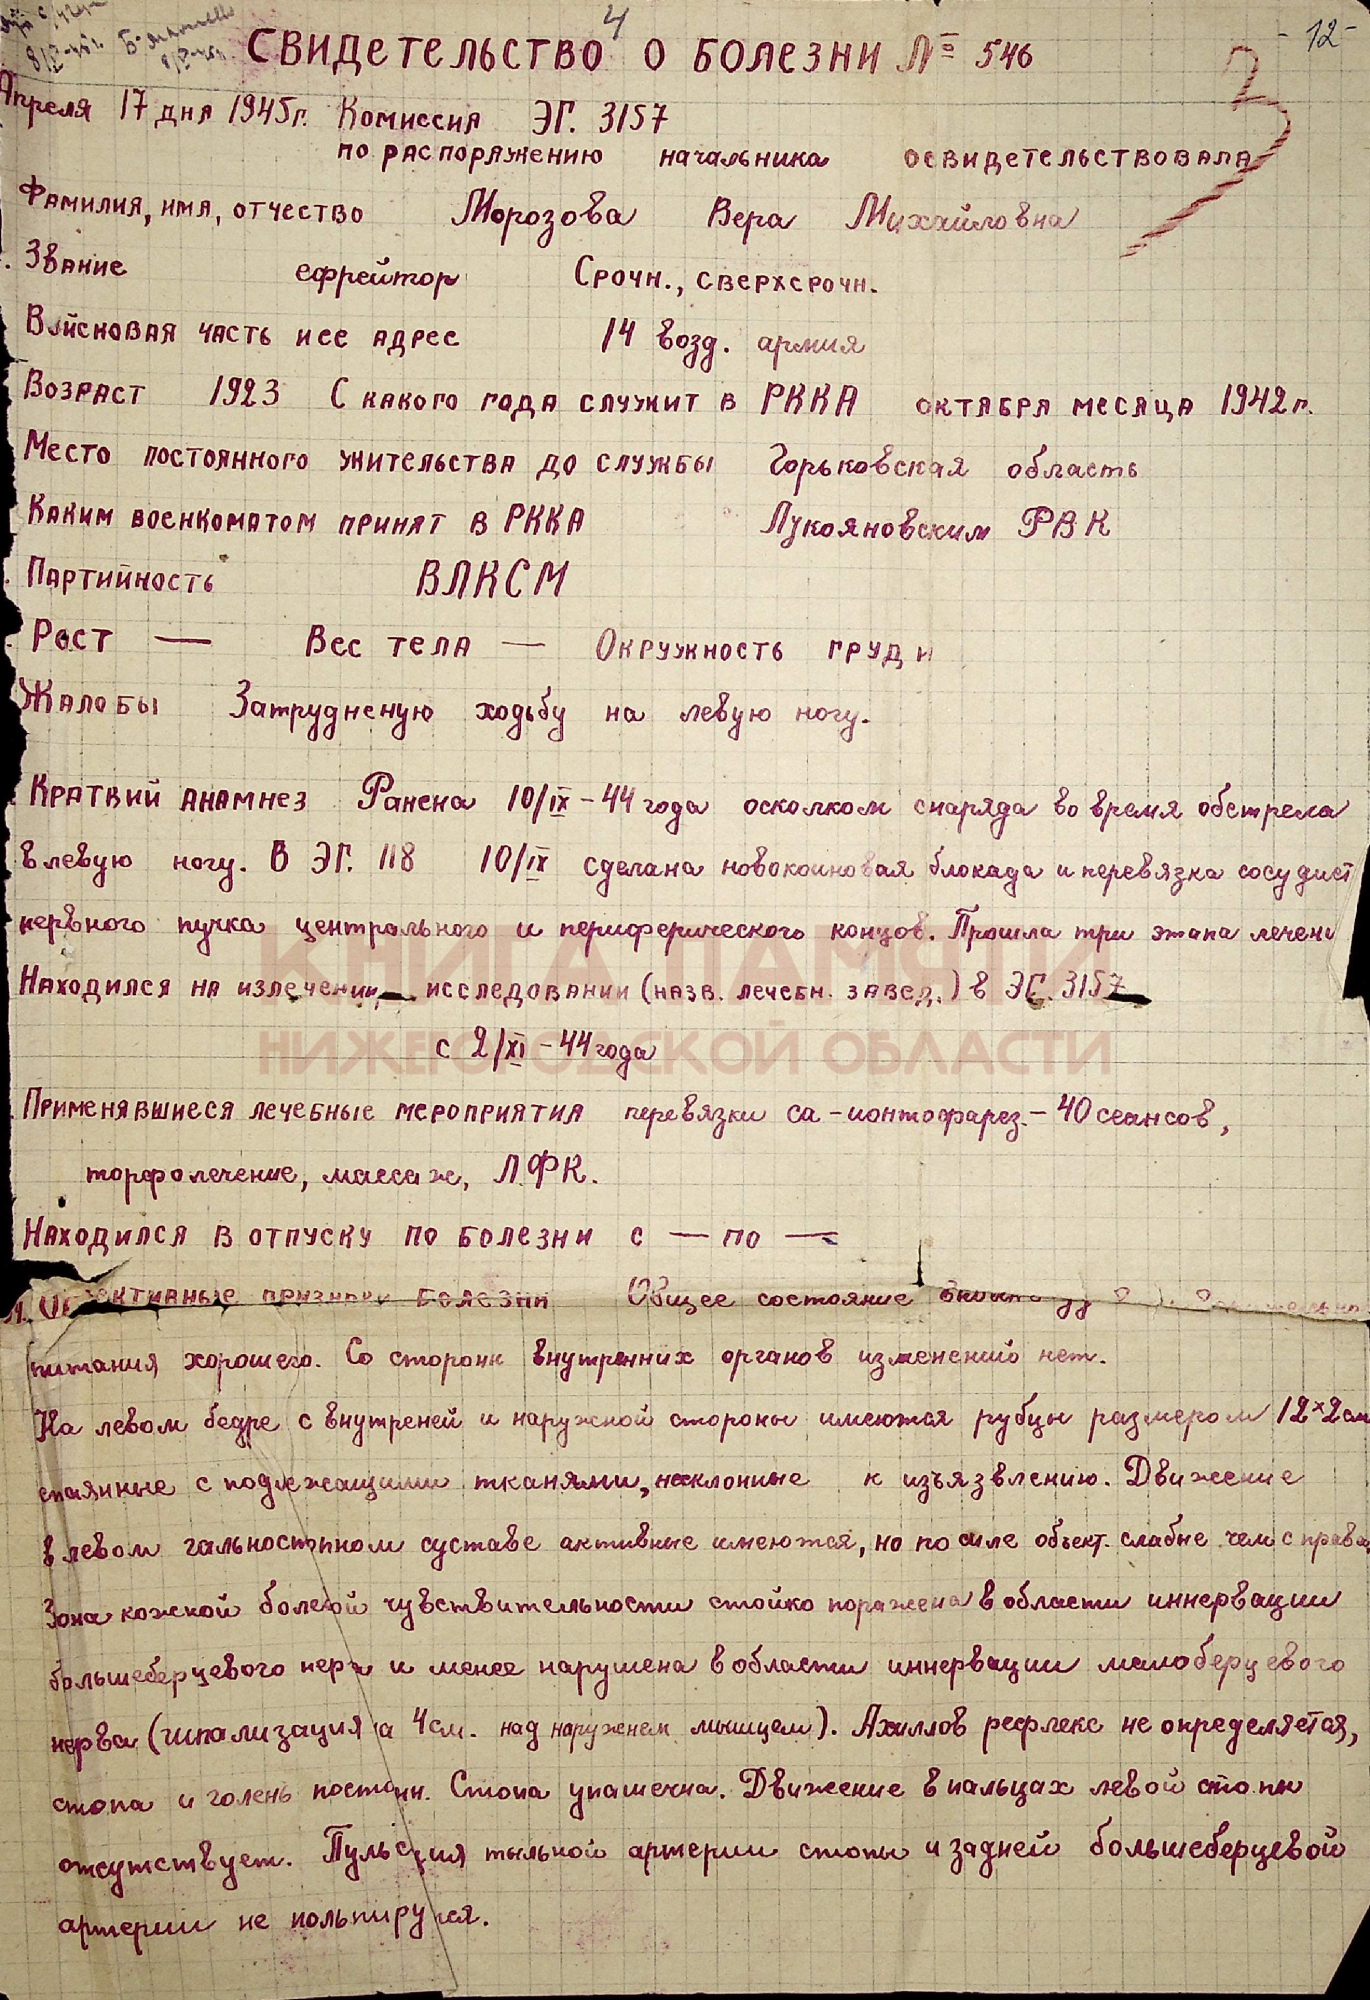 4
-12-
СВИДЕТЕЛЬСТВО О БОЛЕЗНИ № 546
3
Апреля 17 дня 1945г. Комиссия ЭГ. 3157
по распоряжению начальника освидетельствовала
Фамилия, имя, отчество Морозова Вера Михайловна
Звание ефрейтор Срочн., сверхсрочн.
Войсковая часть и ее адрес 14 возд. армия
Возраст 1923 С какого года служит в РККА октября месяца 1942г.
Место постоянного жительства до службы Горьковская область
Каким военкоматом принят в РККА Лукояновским РВК
Партийность ВЛКСМ
Рост — Вес тела — Окружность груди
Жалобы Затрудненую ходьбу на левую ногу.
Краткий анамнез Ранена 10/IX-44 года осколком снаряда во время обстрела
в левую ногу. В ЭГ. 118 10/IX сделана новокоиновая блокада и перевязка сосудист
нервного пучка центрального и периферического концов. Прошла три этапа лечени
КНИГА ПАМЯТИ
Находился на излечении, исследовании (назв. лечебн. завед.) в ЭГ. 3157
с 2/XI-44 года
НИЖЕГОРОДСКОЙ ОБЛАСТИ
Применявшиеся лечебные мероприятия перевязки са-ионтофарез.- 40 сеансов,
торфолечение, массаж, ЛФК.
Находился в отпуску по болезни с — по —
Объективные признаки болезни Общее состояние
питания хорошего. Со стороны внутренних органов изменений нет.
На левом бедре с внутреней и наружной стороны имеются рубцы размером 12×2см
спаянные с подлежащими тканями, наклонные к изъязвлению. Движение
в левом гальностопном суставе активные имеются, но по силе объект. слабые чем с права
Зона кожной болевой чувствительности стойко поражена в области иннервации
большеберцевого нерва и менее нарушена в области иннервации малоберцевого
нерва (гипализация на 4см. над наружнем мыщцем). Ахиллов рефлекс не определяется,
стопа и голень постоянн. Стопа упашечна. Движение в пальцах левой стопы
отсутствует. Пульсция тыльной артерии стопы и задней большеберцевой
артерии не польпируися.